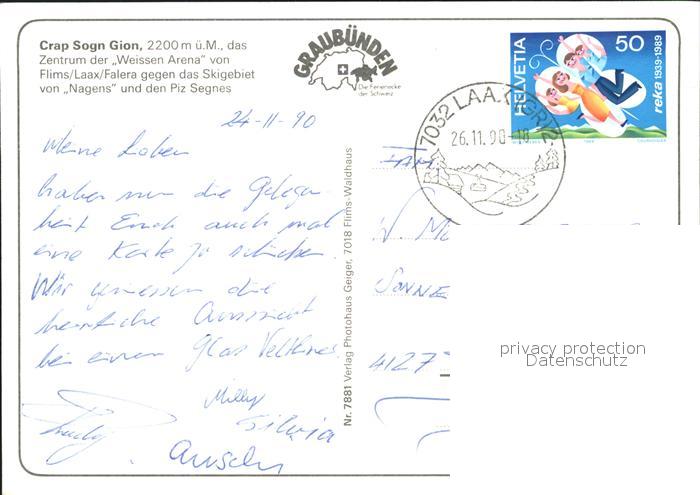 Crap Sogn Gion, 2200 m ü.M., das
Zentrum der „Weissen Arena" von
Flims/Laax/Falera gegen das Skigebiet
von „Nagens" und den Piz Segnes
GRAUBÜNDEN
Die Ferienecke
der Schweiz
HELVETIA
50
reka 1939-1989
7032 LAAX (GR) 2
26.11.90-18
24-11-90
Meine Lieben
haben nun die Gelegen-
heit Euch auch mal
eine Karte zu schicken.
Wir geniessen die
herrliche Aussicht
bei einem Glas Veltliner.
Milly
Silvia
Nr. 7881 Verlag Photohaus Geiger, 7018 Flims-Waldhaus
FAM
W. M
SONNE
4127
privacy protection
Datenschutz